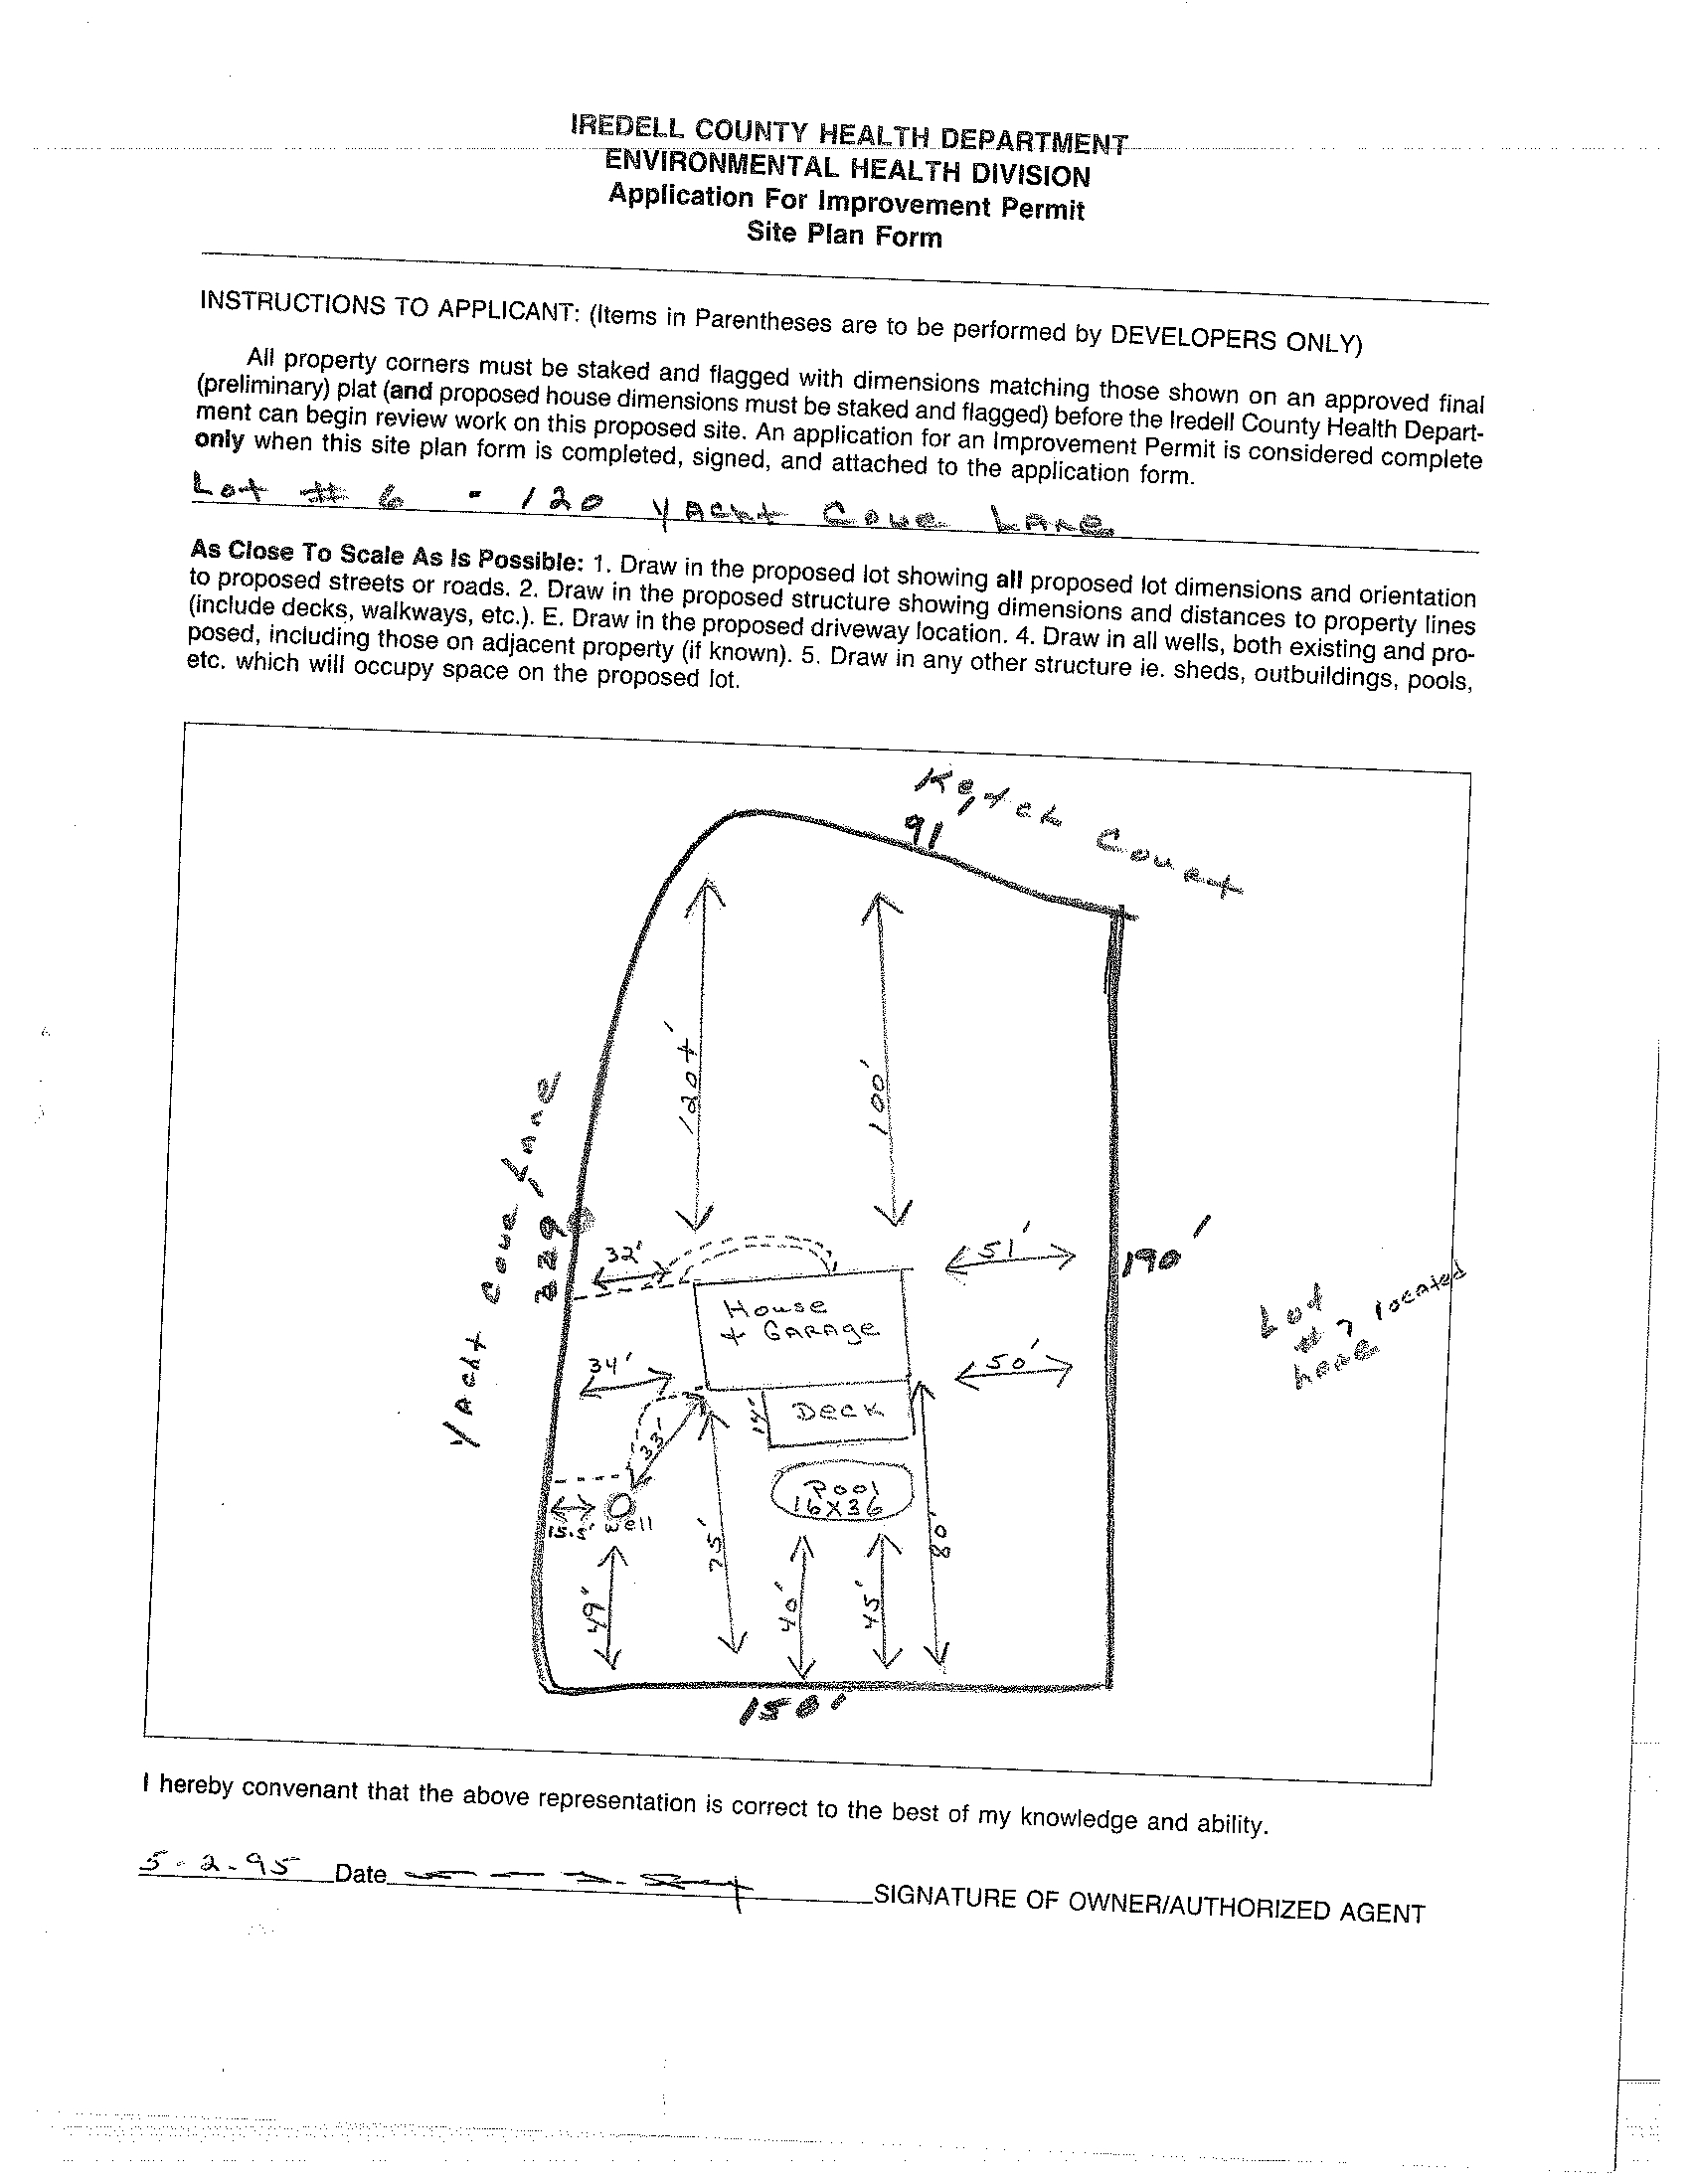 IREDELL COUNTY HEALTH DEPARTMENT
ENVIRONMENTAL HEALTH DIVISION
Application For Improvement Permit
Site Plan Form
INSTRUCTIONS TO APPLICANT: (Items in Parentheses are to be performed by DEVELOPERS ONLY)
All property corners must be staked and flagged with dimensions matching those shown on an approved final
(preliminary) plat (and proposed house dimensions must be staked and flagged) before the Iredell County Health Depart-
ment can begin review work on this proposed site. An application for an Improvement Permit is considered complete
only when this site plan form is completed, signed, and attached to the application form.
Lot # 6 - 120 Yacht Cove Lane
As Close To Scale As Is Possible: 1. Draw in the proposed lot showing all proposed lot dimensions and orientation
to proposed streets or roads. 2. Draw in the proposed structure showing dimensions and distances to property lines
(include decks, walkways, etc.). E. Draw in the proposed driveway location. 4. Draw in all wells, both existing and pro-
posed, including those on adjacent property (if known). 5. Draw in any other structure ie. sheds, outbuildings, pools,
etc. which will occupy space on the proposed lot.
Ketch Court
91
120+'
100'
Yacht Cove Lane
229
32'
51'
190'
House
+ GARAge
Lot
# 7 located
here
34'
50'
14'
Deck
33'
Pool
16X36
15.5' well
75'
80'
49'
40'
45'
150'
I hereby convenant that the above representation is correct to the best of my knowledge and ability.
5-2-95 Date SIGNATURE OF OWNER/AUTHORIZED AGENT